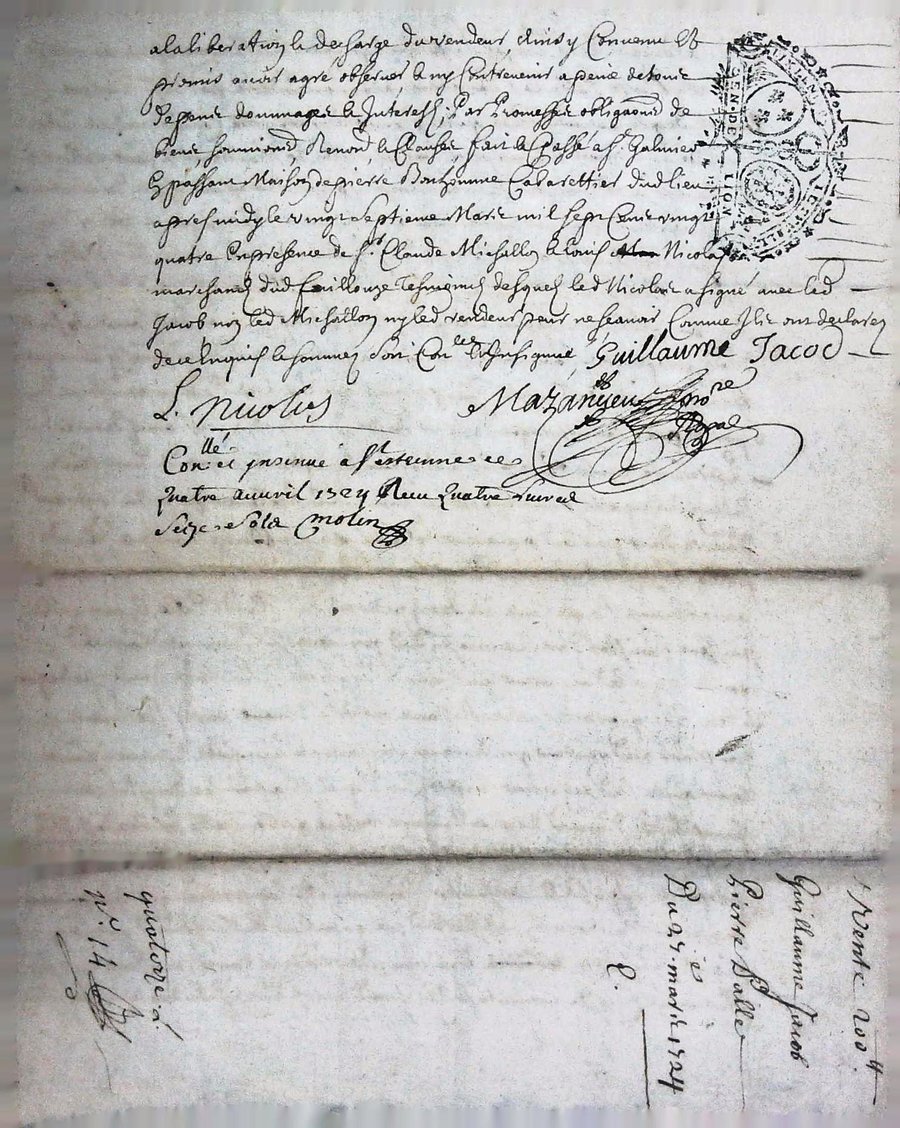 a la liberation & decharge du vendeur, Ainsy Convenu Et
promis avoir agré observer & ny Contrevenir a peine de tous
depens dommages & Interests, Par Promesses obligaons de
biens, soumions, Renons, & Clauses, fait & Passé a St Galmier
Maison de pierre Cabarettier dud lieu
apres midy le vingt Septieme Mars mil sept Cent vingt
quatre En presence de Sr Claude Michallon & Louis Nicolas
marchands dud tesmoins desquels led Nicolas a signé avec led
Jacob non led Michallon ny led vendeur pour ne scavoir Comme Ils ont declarez
de ce Enquis & sommez Soit Conllé & Insinué, Guillaume Jacob
L. Nicolas
Mazanyeu nore
Royal
Conllé et insinué a St estienne ce
quatre avvril 1724 Receu quatre Livres
seize sols molin
GEN. DE LION
Vente 200ll.
Guillaume Jacob
Pierre Palle
Du 27e mars 1724
C.
quatorze
n°. 14